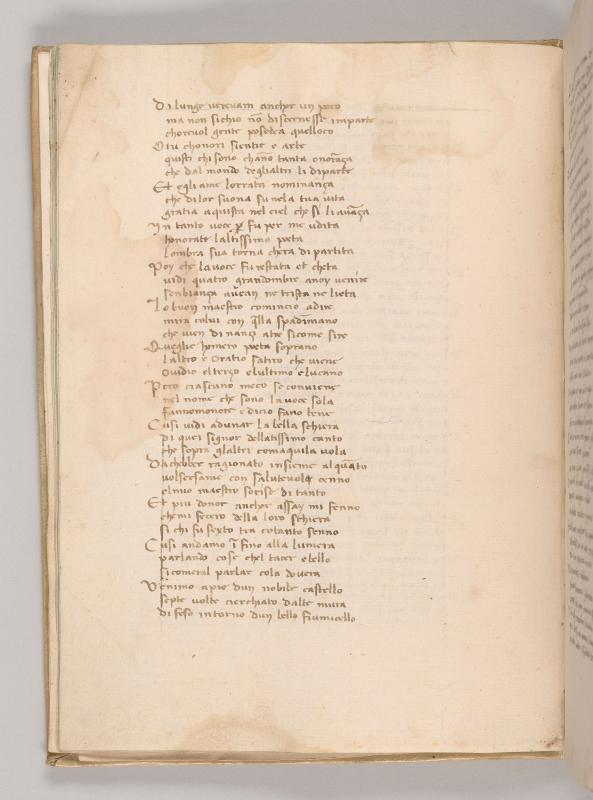 Di lunge verevam anchor un poco
ma non si chio nō discernesse imparte
chorevol gente posedea quelloco
O tu chonori sientie e arte
quisti chi sono chāno tanta onorāça
che dal mondo deglialtri li diparte
Et egli ame lorrata nominança
che dilor suona su nela tua vita
gratia aquista nel ciel che si li avāça
In tanto voce ꝑ fu per me udita
honorate laltissimo poeta
lombra sua torna chera di partita
Poy che la voce fu restata et cheta
vidi quatro grandombre anoy venire
senbiança avean ne trista ne lieta
Lo buon maestro comincio adire
mira colui con q̄lla spada ī mano
che vien di nanç atre sicome sire
Queglie homero poeta soprano
laltro e Oratio satiro che viene
Ovidio el terço el ultimo e lucano
Pero ciascuno meco se conviene
nel nome che sono la voce sola
fannomonore e dicio fano bene
Cusi vidi adunar la bella schiera
di quei signor dellaltissimo canto
che sopra glaltri comaquila vola
Dachebber ragionato insieme alquāto
volsersame con salutevole cenno
el mio maestro sorise di tanto
Et piu donor anchor assay mi fenno
chemi fecero della loro schiera
si chi fu sexto tra cotanto senno
Cusi andamo ī fino alla lumera
parlando cose chel tacer e bello
si comeral parlar cola dovera
Venimo apie dun nobile castello
septe volte cierchiato dalte mura
difeso intorno dun bello fiumicello